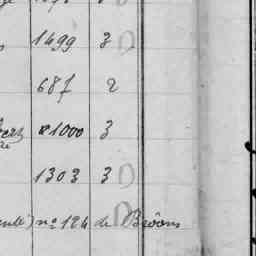 1499 3 D
687 2
1000 3
1303 3 D
nº 124 de Broons